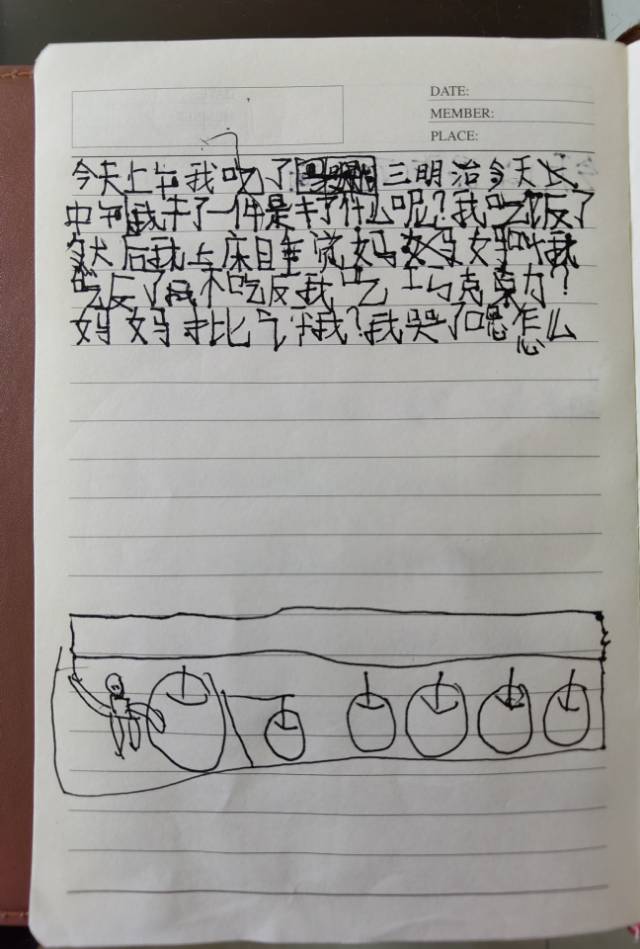 DATE:
MEMBER:
PLACE:
今天上午我吃了三明治今天
中午我干了一件是干了什么呢？我吃饭了
然后我上床目垂说妈妈妈妈叫我
吃反了我不吃反我吃工巧克力？
妈妈批气我？我哭了嗯怎么